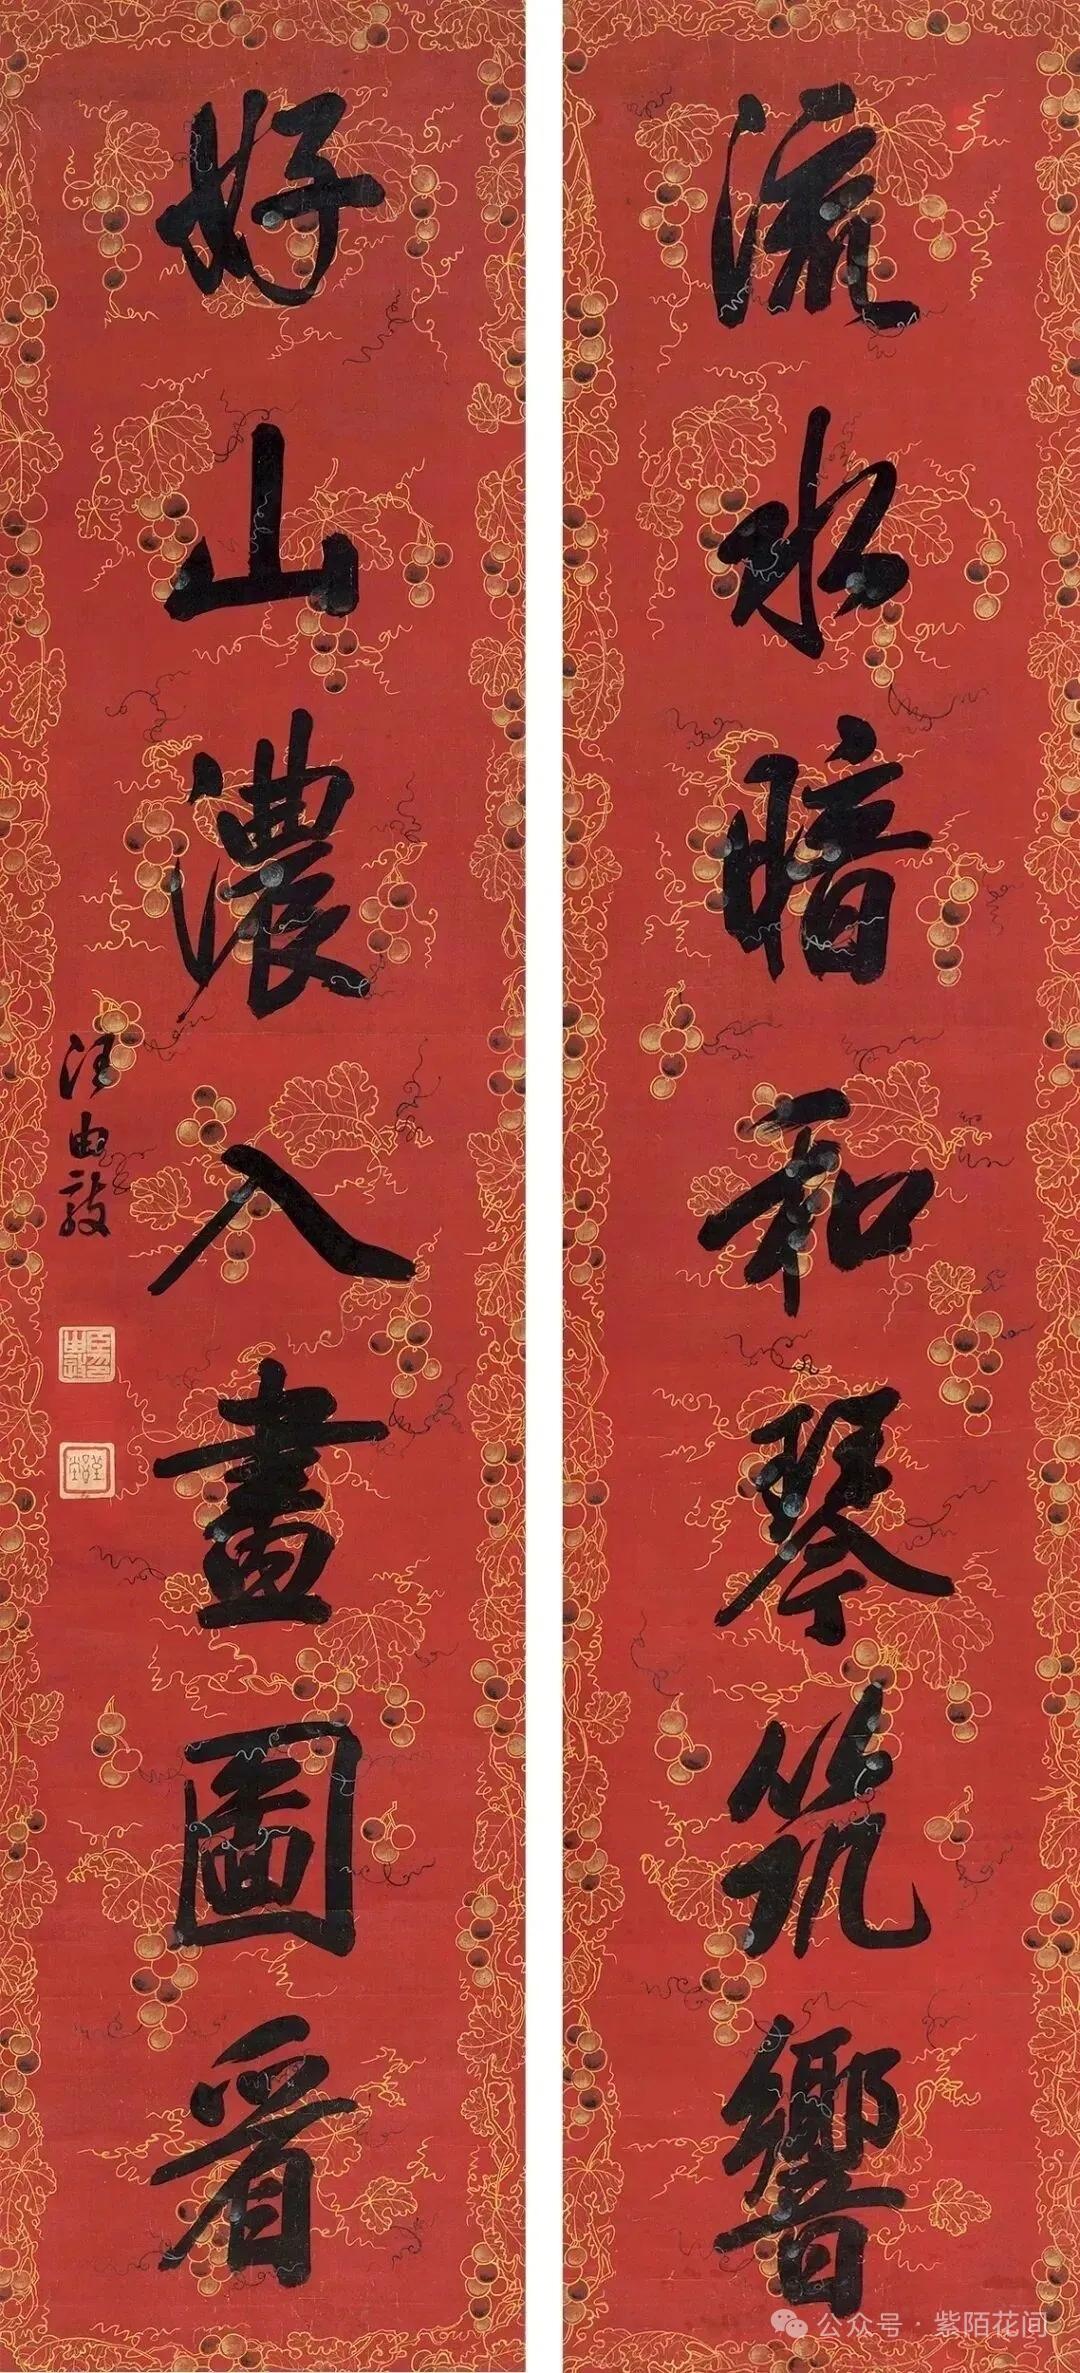 流水暗和琴筑響
好山濃入畫圖看
汪由敦
公众号·紫陌花间